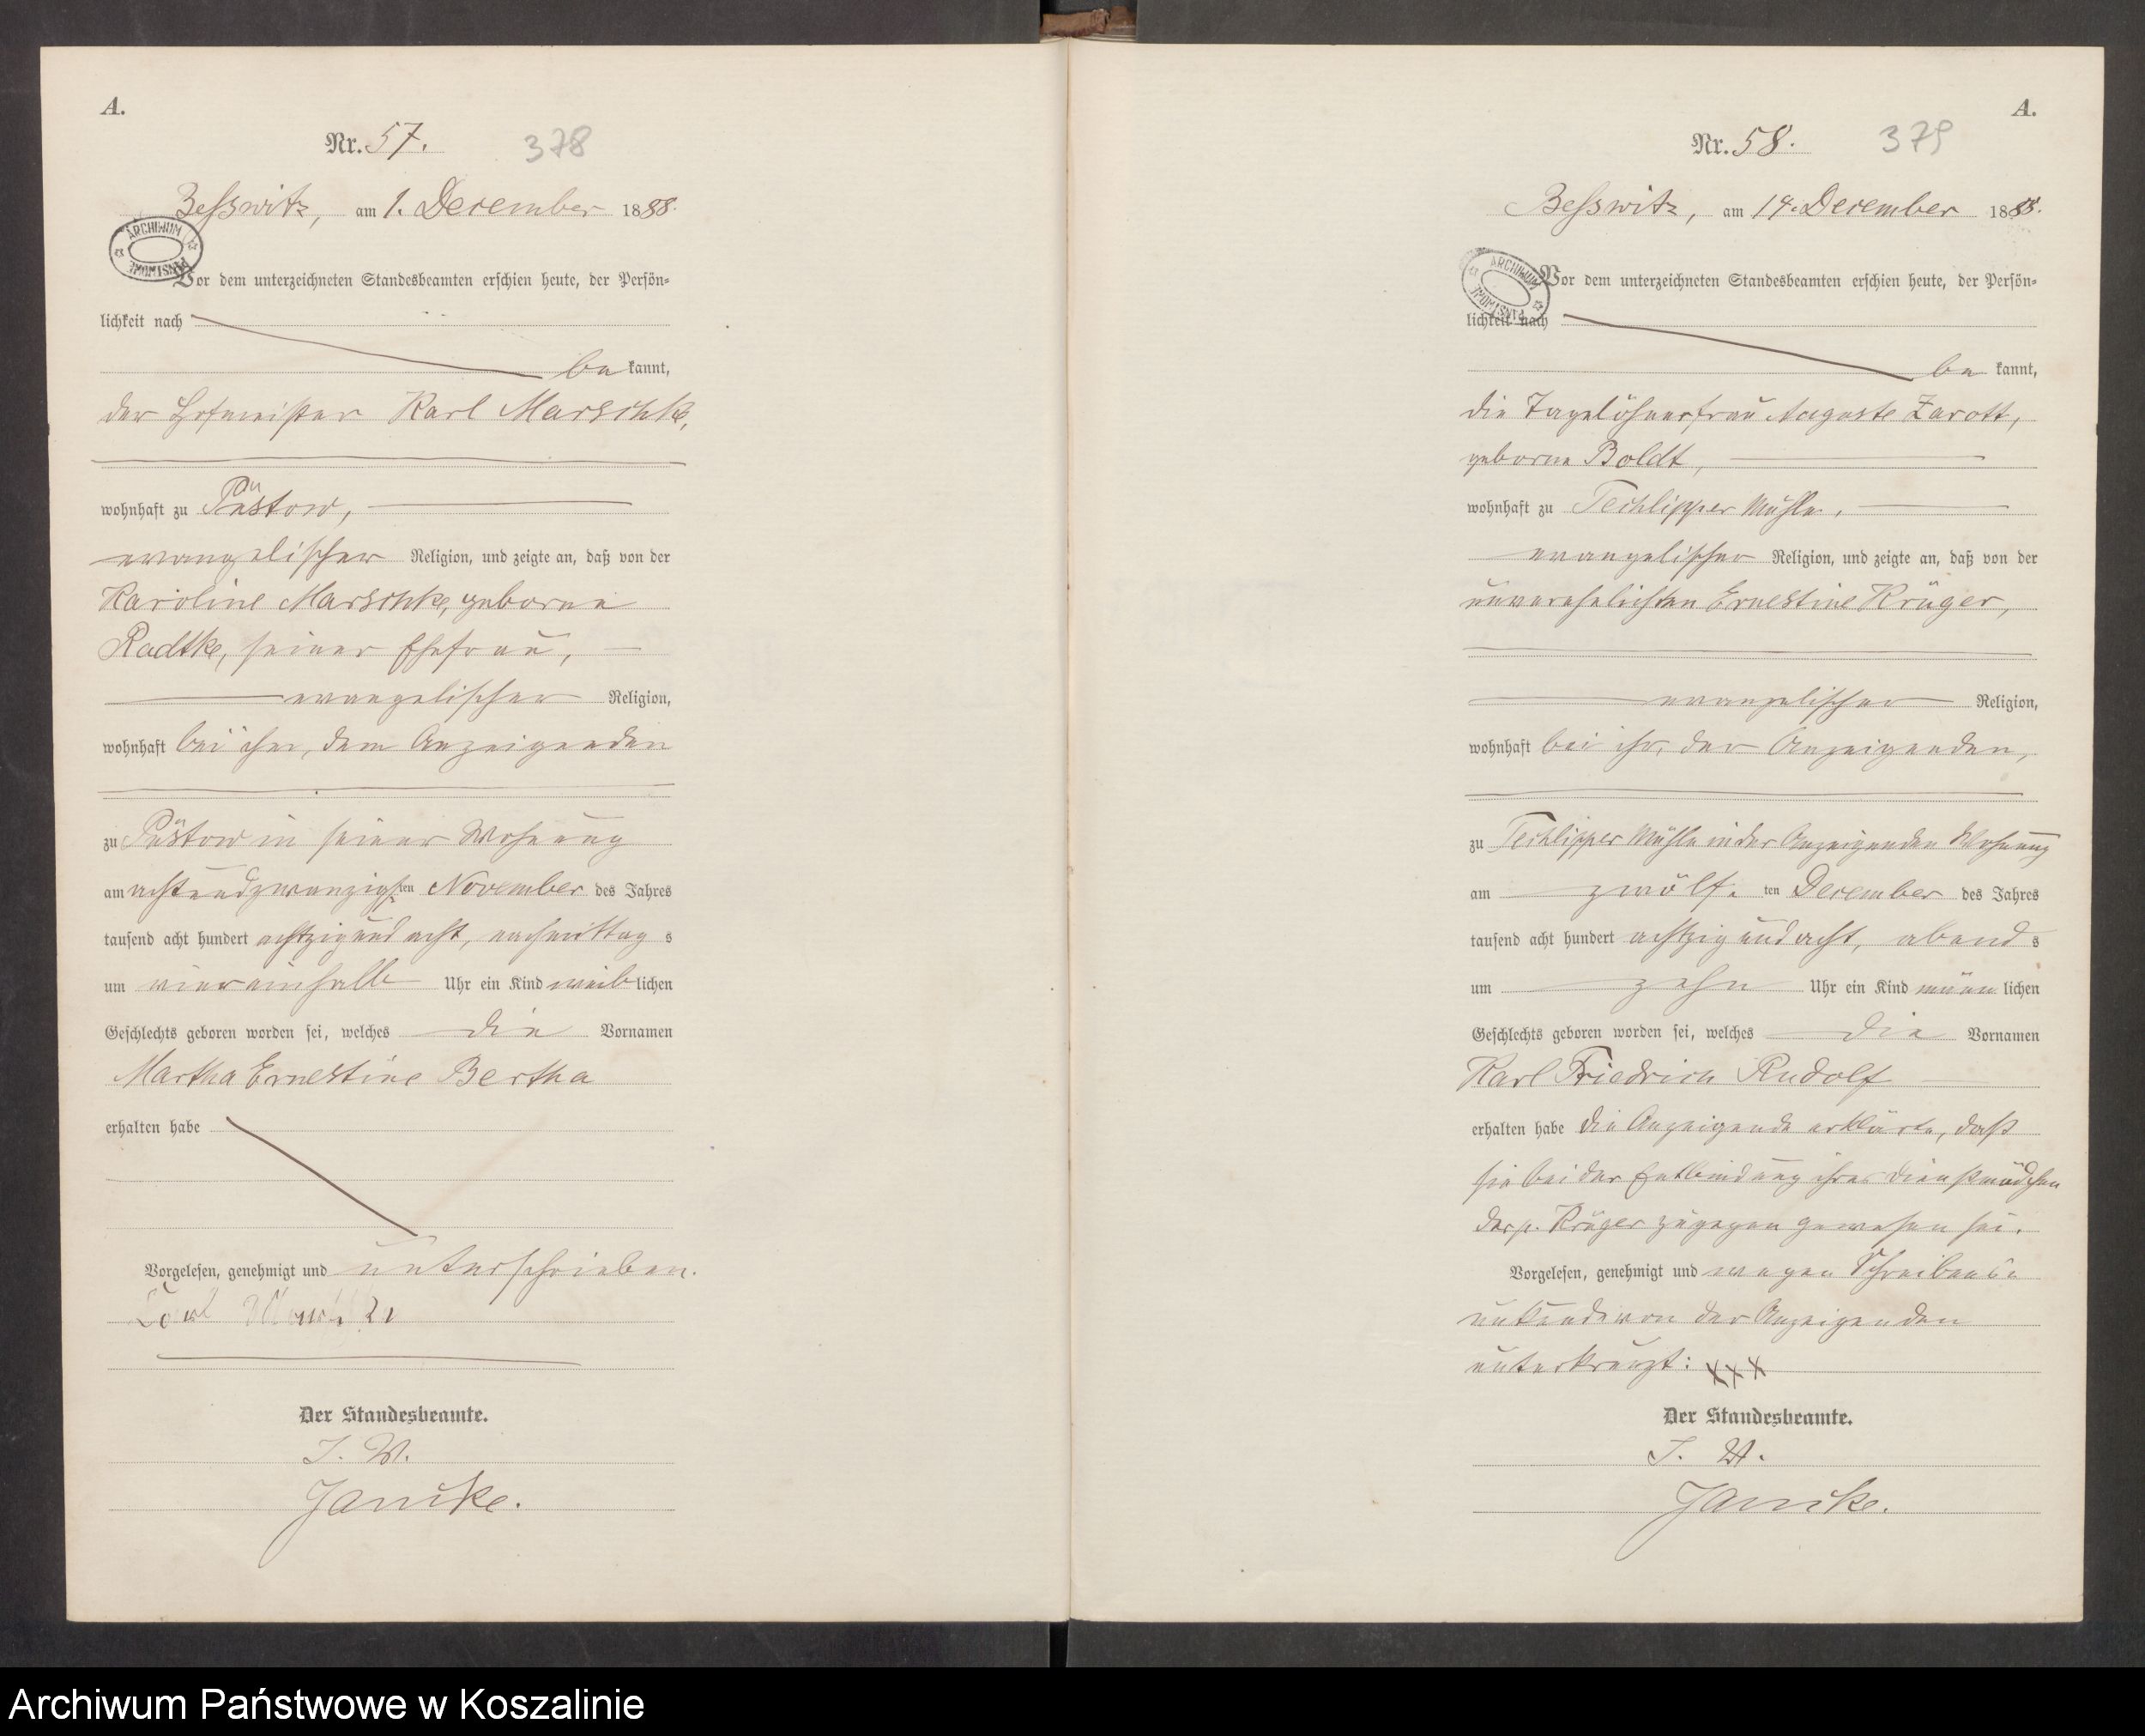 A.
Nr. 57.
378
Beßwitz, am 1. December 1888.
ARCHIWUM PAŃSTWOWE
Vor dem unterzeichneten Standesbeamten erschien heute, der Persön-
lichkeit nach
be kannt,
der Hofmeister Karl Marschke,
wohnhaft zu Püstow,
evangelischer Religion, und zeigte an, daß von der
Karoline Marschke, geborne
Radtke, seiner Ehefrau,
evangelischer Religion,
wohnhaft bei ihm, dem Anzeigenden
zu Püstow in seiner Wohnung
am achtundzwanzigsten November des Jahres
tausend acht hundert achtzig und acht, nachmittag s
um viereinhalb Uhr ein Kind weib lichen
Geschlechts geboren worden sei, welches die Vornamen
Martha Ernestine Bertha
erhalten habe
Vorgelesen, genehmigt und unterschrieben.
Karl
Der Standesbeamte.
I. V.
Janike.
A.
Nr. 58.
379
Beßwitz, am 14. December 1888.
ARCHIWUM PAŃSTWOWE
Vor dem unterzeichneten Standesbeamten erschien heute, der Persön-
lichkeit nach
be kannt,
die Tagelöhnerfrau Auguste Zarott,
geborne Boldt,
wohnhaft zu Techlipper Mühle,
evangelischer Religion, und zeigte an, daß von der
unverehelichten Ernestine Krüger,
evangelischer Religion,
wohnhaft bei ihr, der Anzeigenden,
zu Techlipper Mühle in der Anzeigenden Wohnung
am zwölf ten December des Jahres
tausend acht hundert achtzig und acht, abend s
um zehn Uhr ein Kind männ lichen
Geschlechts geboren worden sei, welches die Vornamen
Karl Friedrich Rudolf
erhalten habe die Anzeigende erklärte, daß
sie bei der Entbindung ihres Dienstmädchen
der p. Krüger zugegen gewesen sei.
Vorgelesen, genehmigt und wegen Schreibens
unkunde von der Anzeigenden
unterkreuzt: XXX
Der Standesbeamte.
I. V.
Janike.
Archiwum Państwowe w Koszalinie